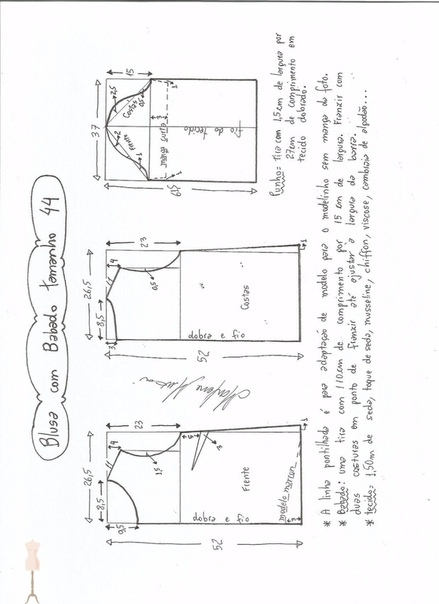 Blusa com Babado tamanho 44
26,5
8,5
9,5
4
23
15
3
dobra e fio
Frente
modelo marcan
3
1
52
26,5
8,5
3
4
23
dobra e fio
Costas
1
52
37
15
Frente
Costas
2
1
3
manga curta
fio do tecido
Punho= tira com 1,5cm de largura por
27cm de comprimento em
tecido dobrado.
* A linha pontilhada é para adaptação de modelo para o modelinho sem manga da foto.
* Babado: uma tira com 110cm de comprimento por 15 cm de largura. Franzir com
duas costuras em ponto de franzir até ajustar a largura da barra.
* tecido: 1,50m de seda, toque de seda, musseline, chiffon, viscose, cambraia de algodão...